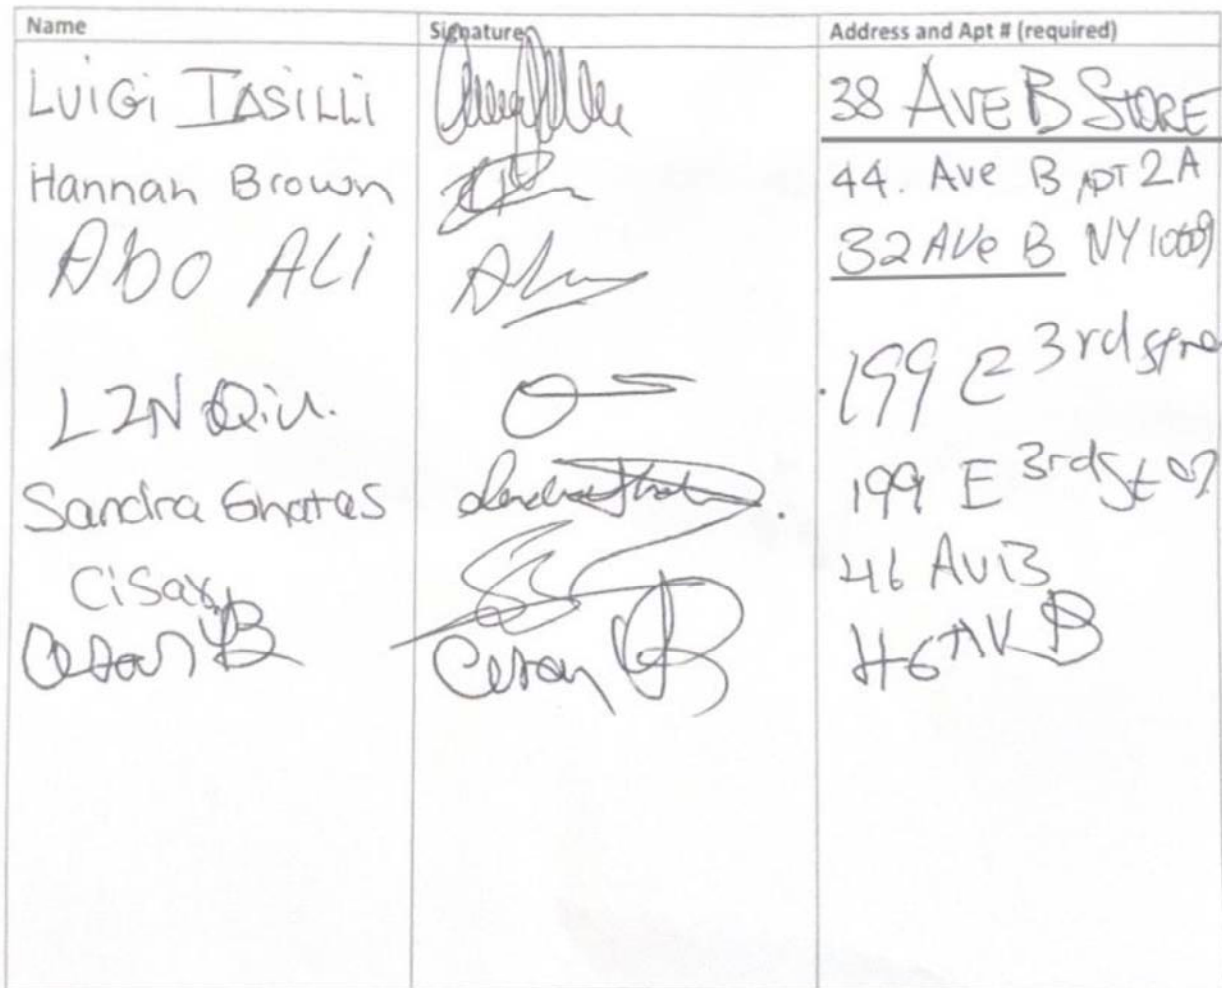 Name Signature Address and Apt # (required)
LUIGI IASILLI 38 AVE B STORE
Hannah Brown 44. Ave B APT 2A
Abo ALI 32 AVe B NY 10009
LZN Qiu. 199 E 3rd
Sandra Ghatas 199 E 3rd St
Cisar 46 Av B
Cesar B Cesar B 46 AV B